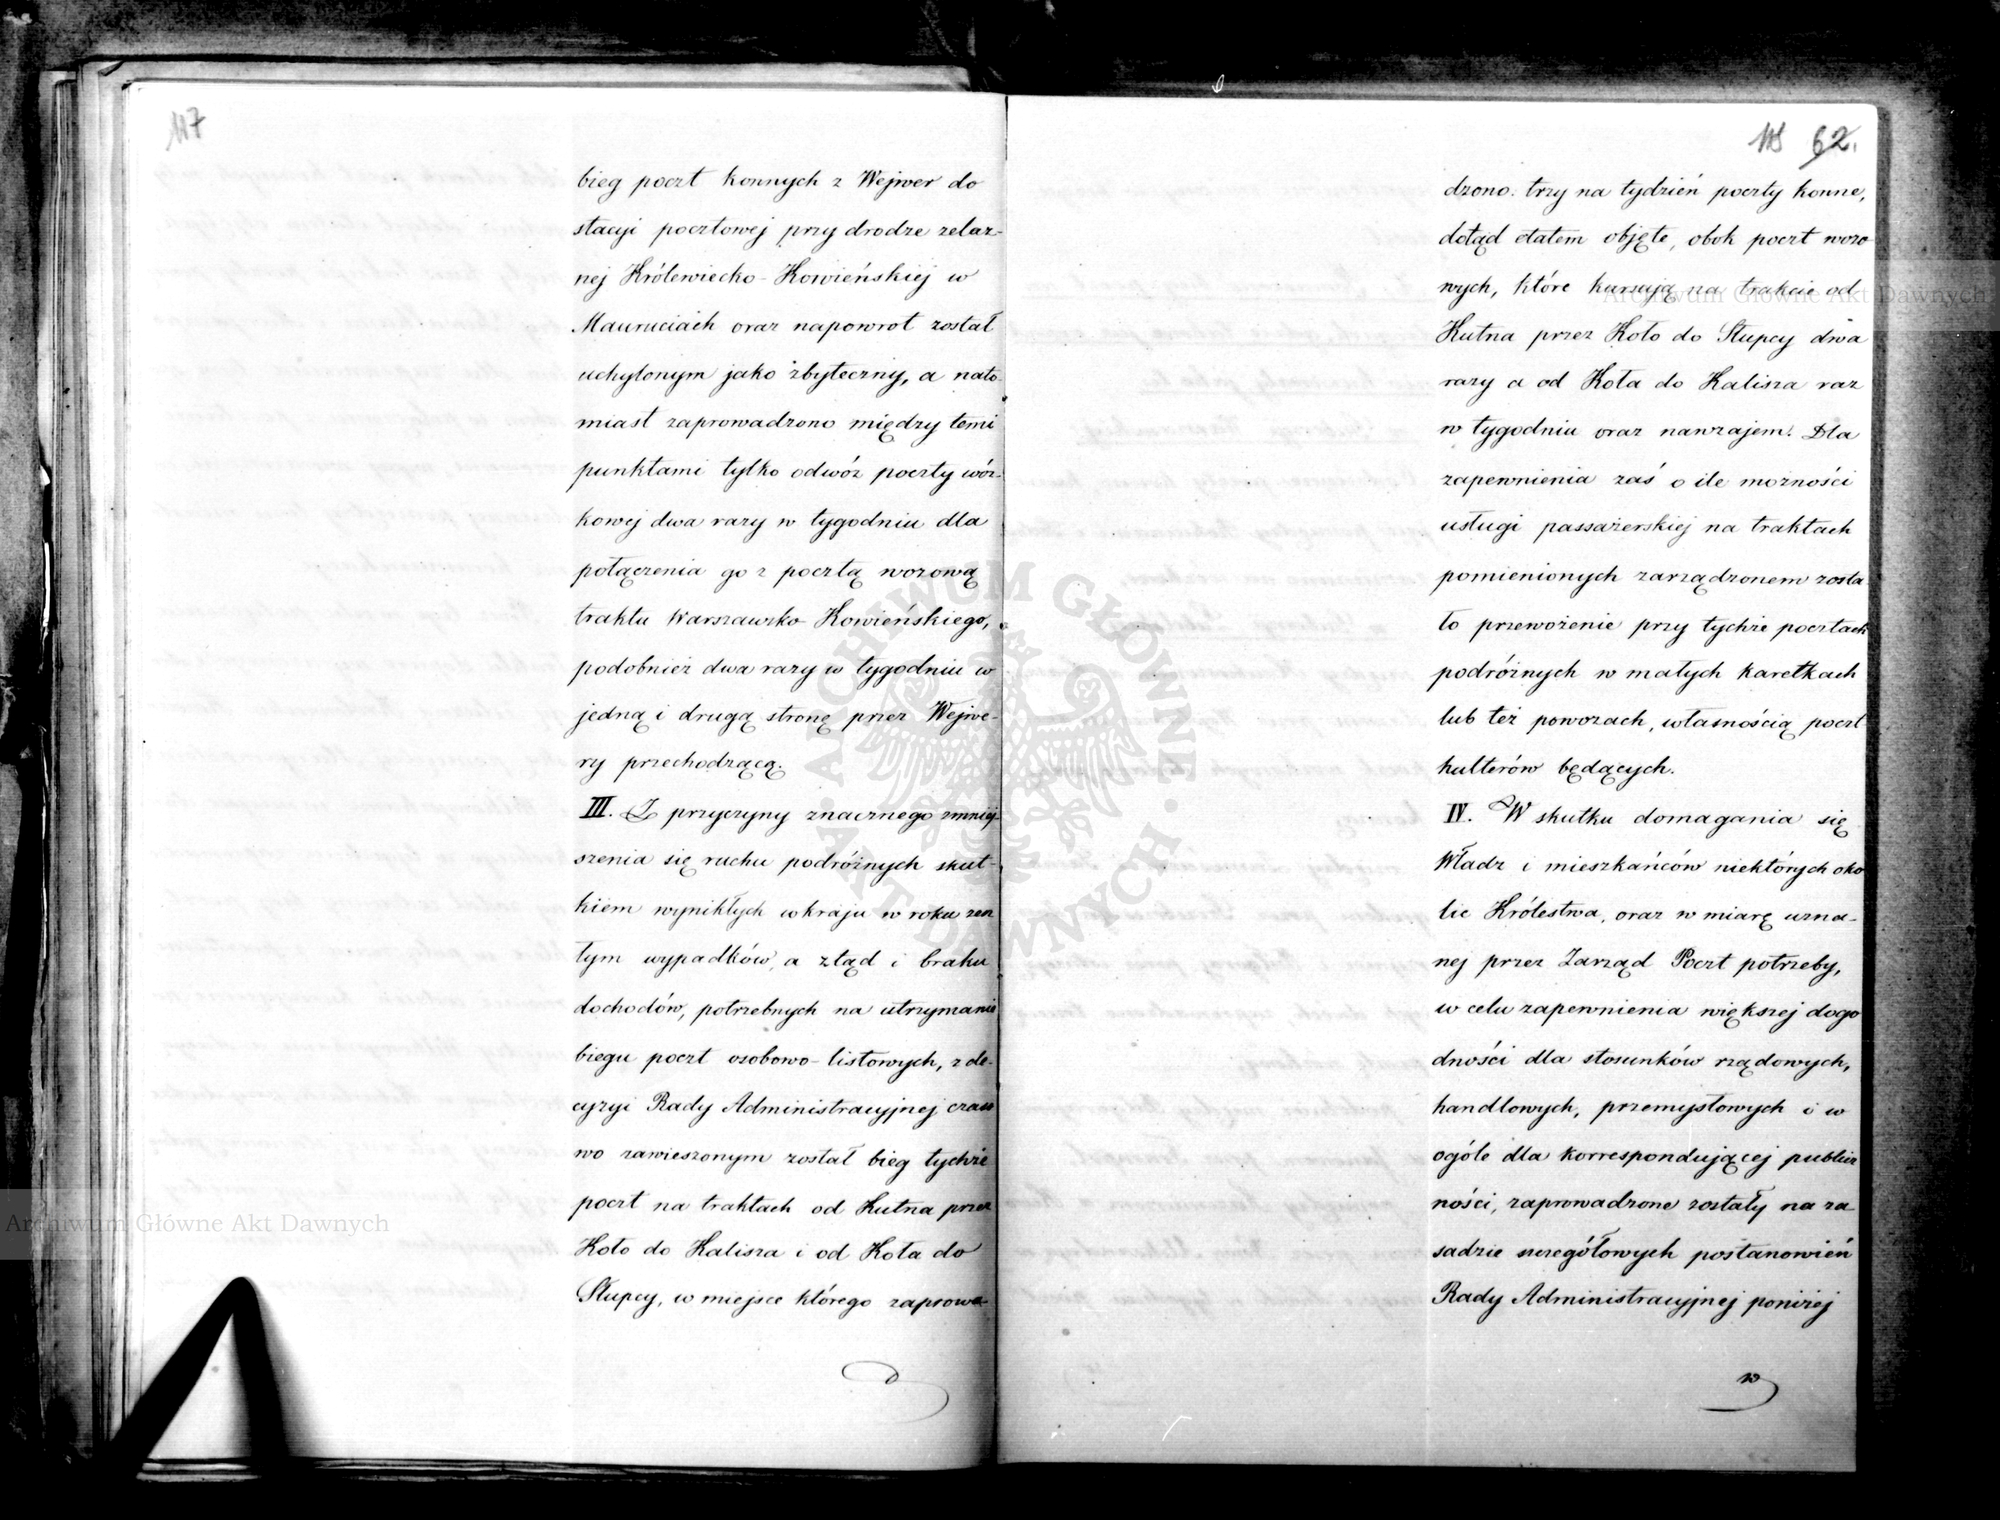 117
bieg poczt konnych z Wejwer do
stacyi pocztowej przy drodze żelaz-
nej Królewiecko-Kowieńskiej w
Mauruciach oraz napowrot został
uchylonym jako zbyteczny, a nato-
miast zaprowadzono między temi
punktami tylko odwóz poczty wóz-
kowej dwa razy w tygodniu dla
połączenia go z pocztą wozową
traktu Warszawsko Kowieńskiego,
podobnież dwa razy w tygodniu w
jedną i drugą stronę przez Wejwe-
ry przechodzącą.
III. Z przyczyny znacznego zmniej-
szenia się ruchu podróżnych skut-
kiem wynikłych w kraju w roku zesz
łym wypadków, a ztąd i braku
dochodów, potrzebnych na utrzymanie
biegu poczt osobowo-listowych, z de-
cyzyi Rady Administracyjnej czaso
wo zawieszonym został bieg tychże
poczt na traktach od Kutna przez
Koło do Kalisza i od Koła do
Słupcy, w miejsce którego zaprowa-
118 62.
dzono: trzy na tydzień poczty konne,
dotąd etatem objęte, obok poczt wozo
wych, które kursują na trakcie od
Kutna przez Koło do Słupcy dwa
razy a od Koła do Kalisza raz
w tygodniu oraz nawzajem. Dla
zapewnienia zaś o ile możności
usługi passażerskiej na traktach
pomienionych zarządzonem zosta
ło przewożenie przy tychże pocztach
podróżnych w małych karetkach
lub też powozach, własnością poczt
halterów będących.
IV. W skutku domagania się
Władz i mieszkańców niektórych oko
lic Królestwa, oraz w miarę uzna-
nej przez Zarząd Poczt potrzeby,
w celu zapewnienia większej dogo
dności dla stosunków rządowych,
handlowych, przemysłowych i w
ogóle dla korrespondującej publicz
ności, zaprowadzone zostały na za-
sadzie szczegółowych postanowień
Rady Administracyjnej poniżej
w
Archiwum Główne Akt Dawnych
Archiwum Główne Akt Dawnych
ARCHIWUM GŁÓWNE AKT DAWNYCH